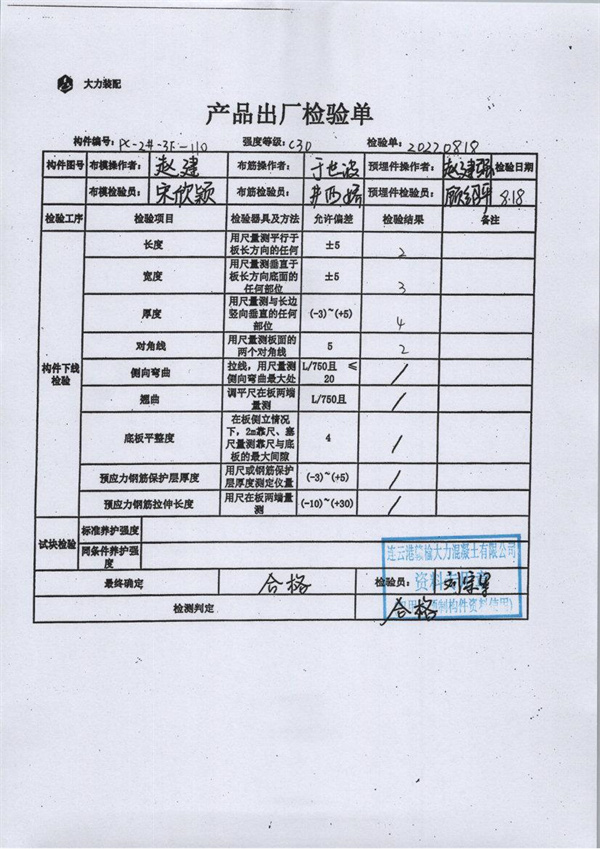 大力装配
产品出厂检验单
构件编号：PC-2#-3F-110 强度等级：C30 检验单：20220818
构件图号 布模操作者：赵建 布筋操作者：于世波 预埋件操作者：赵建强 检验日期
布模检验员：宋欣颖 布筋检验员： 预埋件检验员： 8.18
检验工序 检验项目 检验器具及方法 允许偏差 检验结果 备注
构件下线检验
长度 用尺量测平行于板长方向的任何 ±5 2
宽度 用尺量测垂直于板长方向底面的任何部位 ±5 3
厚度 用尺量测与长边竖向垂直的任何部位 (-3)~(+5) 4
对角线 用尺量测板面的两个对角线 5 2
侧向弯曲 拉线，用尺量测侧向弯曲最大处 L/750且 ≤20 /
翘曲 调平尺在板两端量测 L/750且 /
底板平整度 在板侧立情况下，2m靠尺、塞尺量测靠尺与底板的最大间隙 4 /
预应力钢筋保护层厚度 用尺或钢筋保护层厚度测定仪量 (-3)~(+5) /
预应力钢筋拉伸长度 用尺在板两端量测 (-10)~(+30) /
试块检验 标准养护强度
同条件养护强度
最终确定 合格 检验员：
检测判定 合格
连云港赣榆大力混凝土有限公司